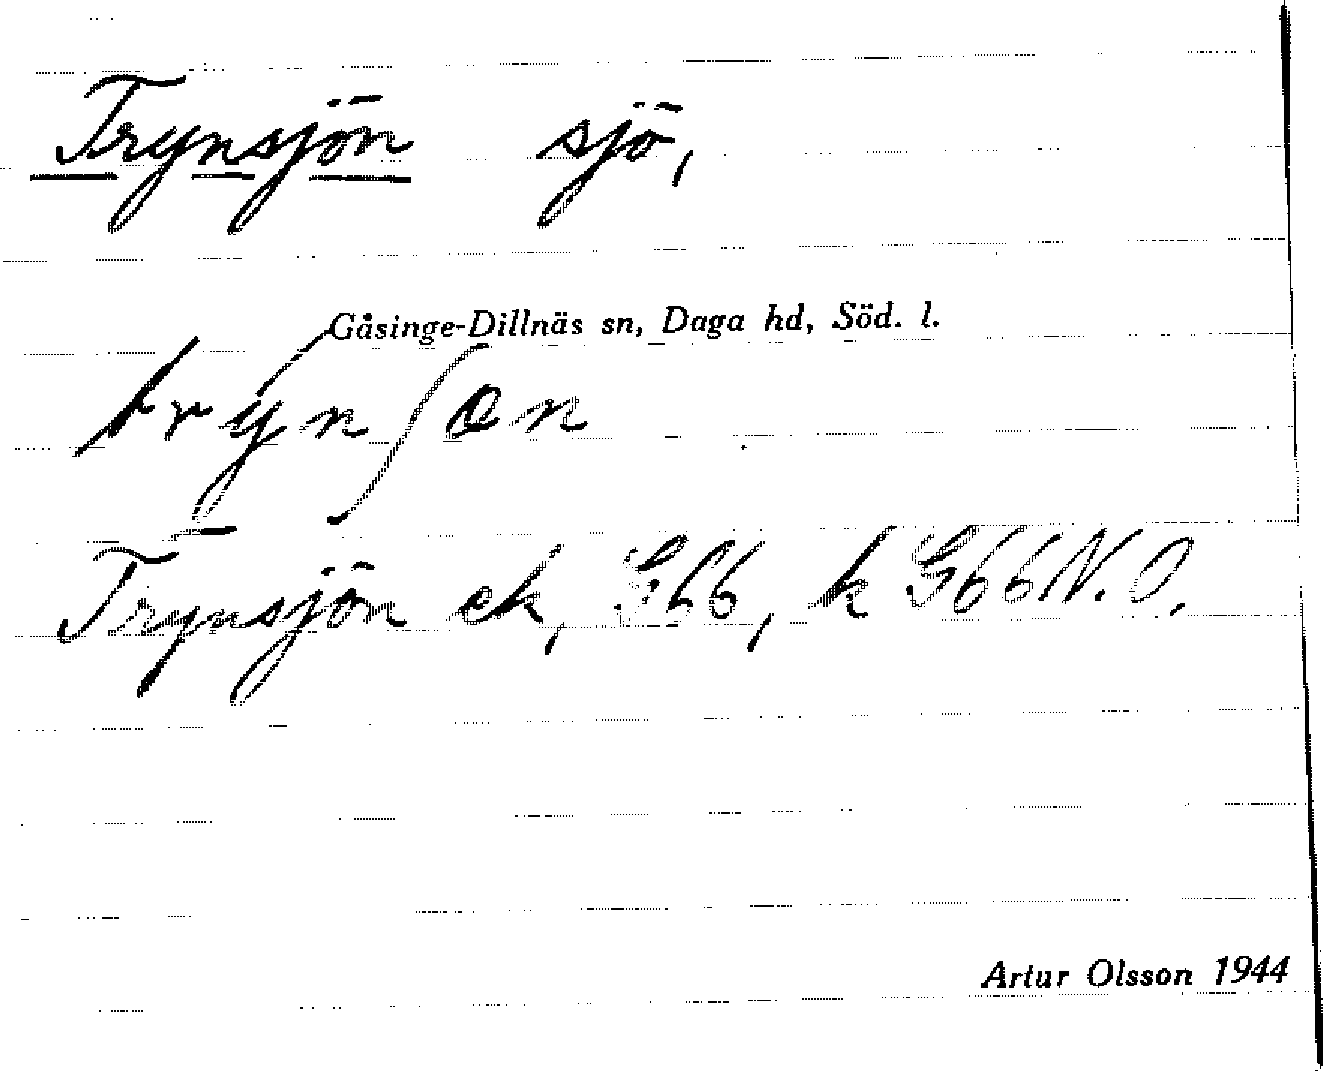 Trynsjön sjö,
Gåsinge-Dillnäs sn, Daga hd, Söd. l.
trýnʃɷn
Trynsjön ek, G66, k G66N.O.
Artur Olsson 1944